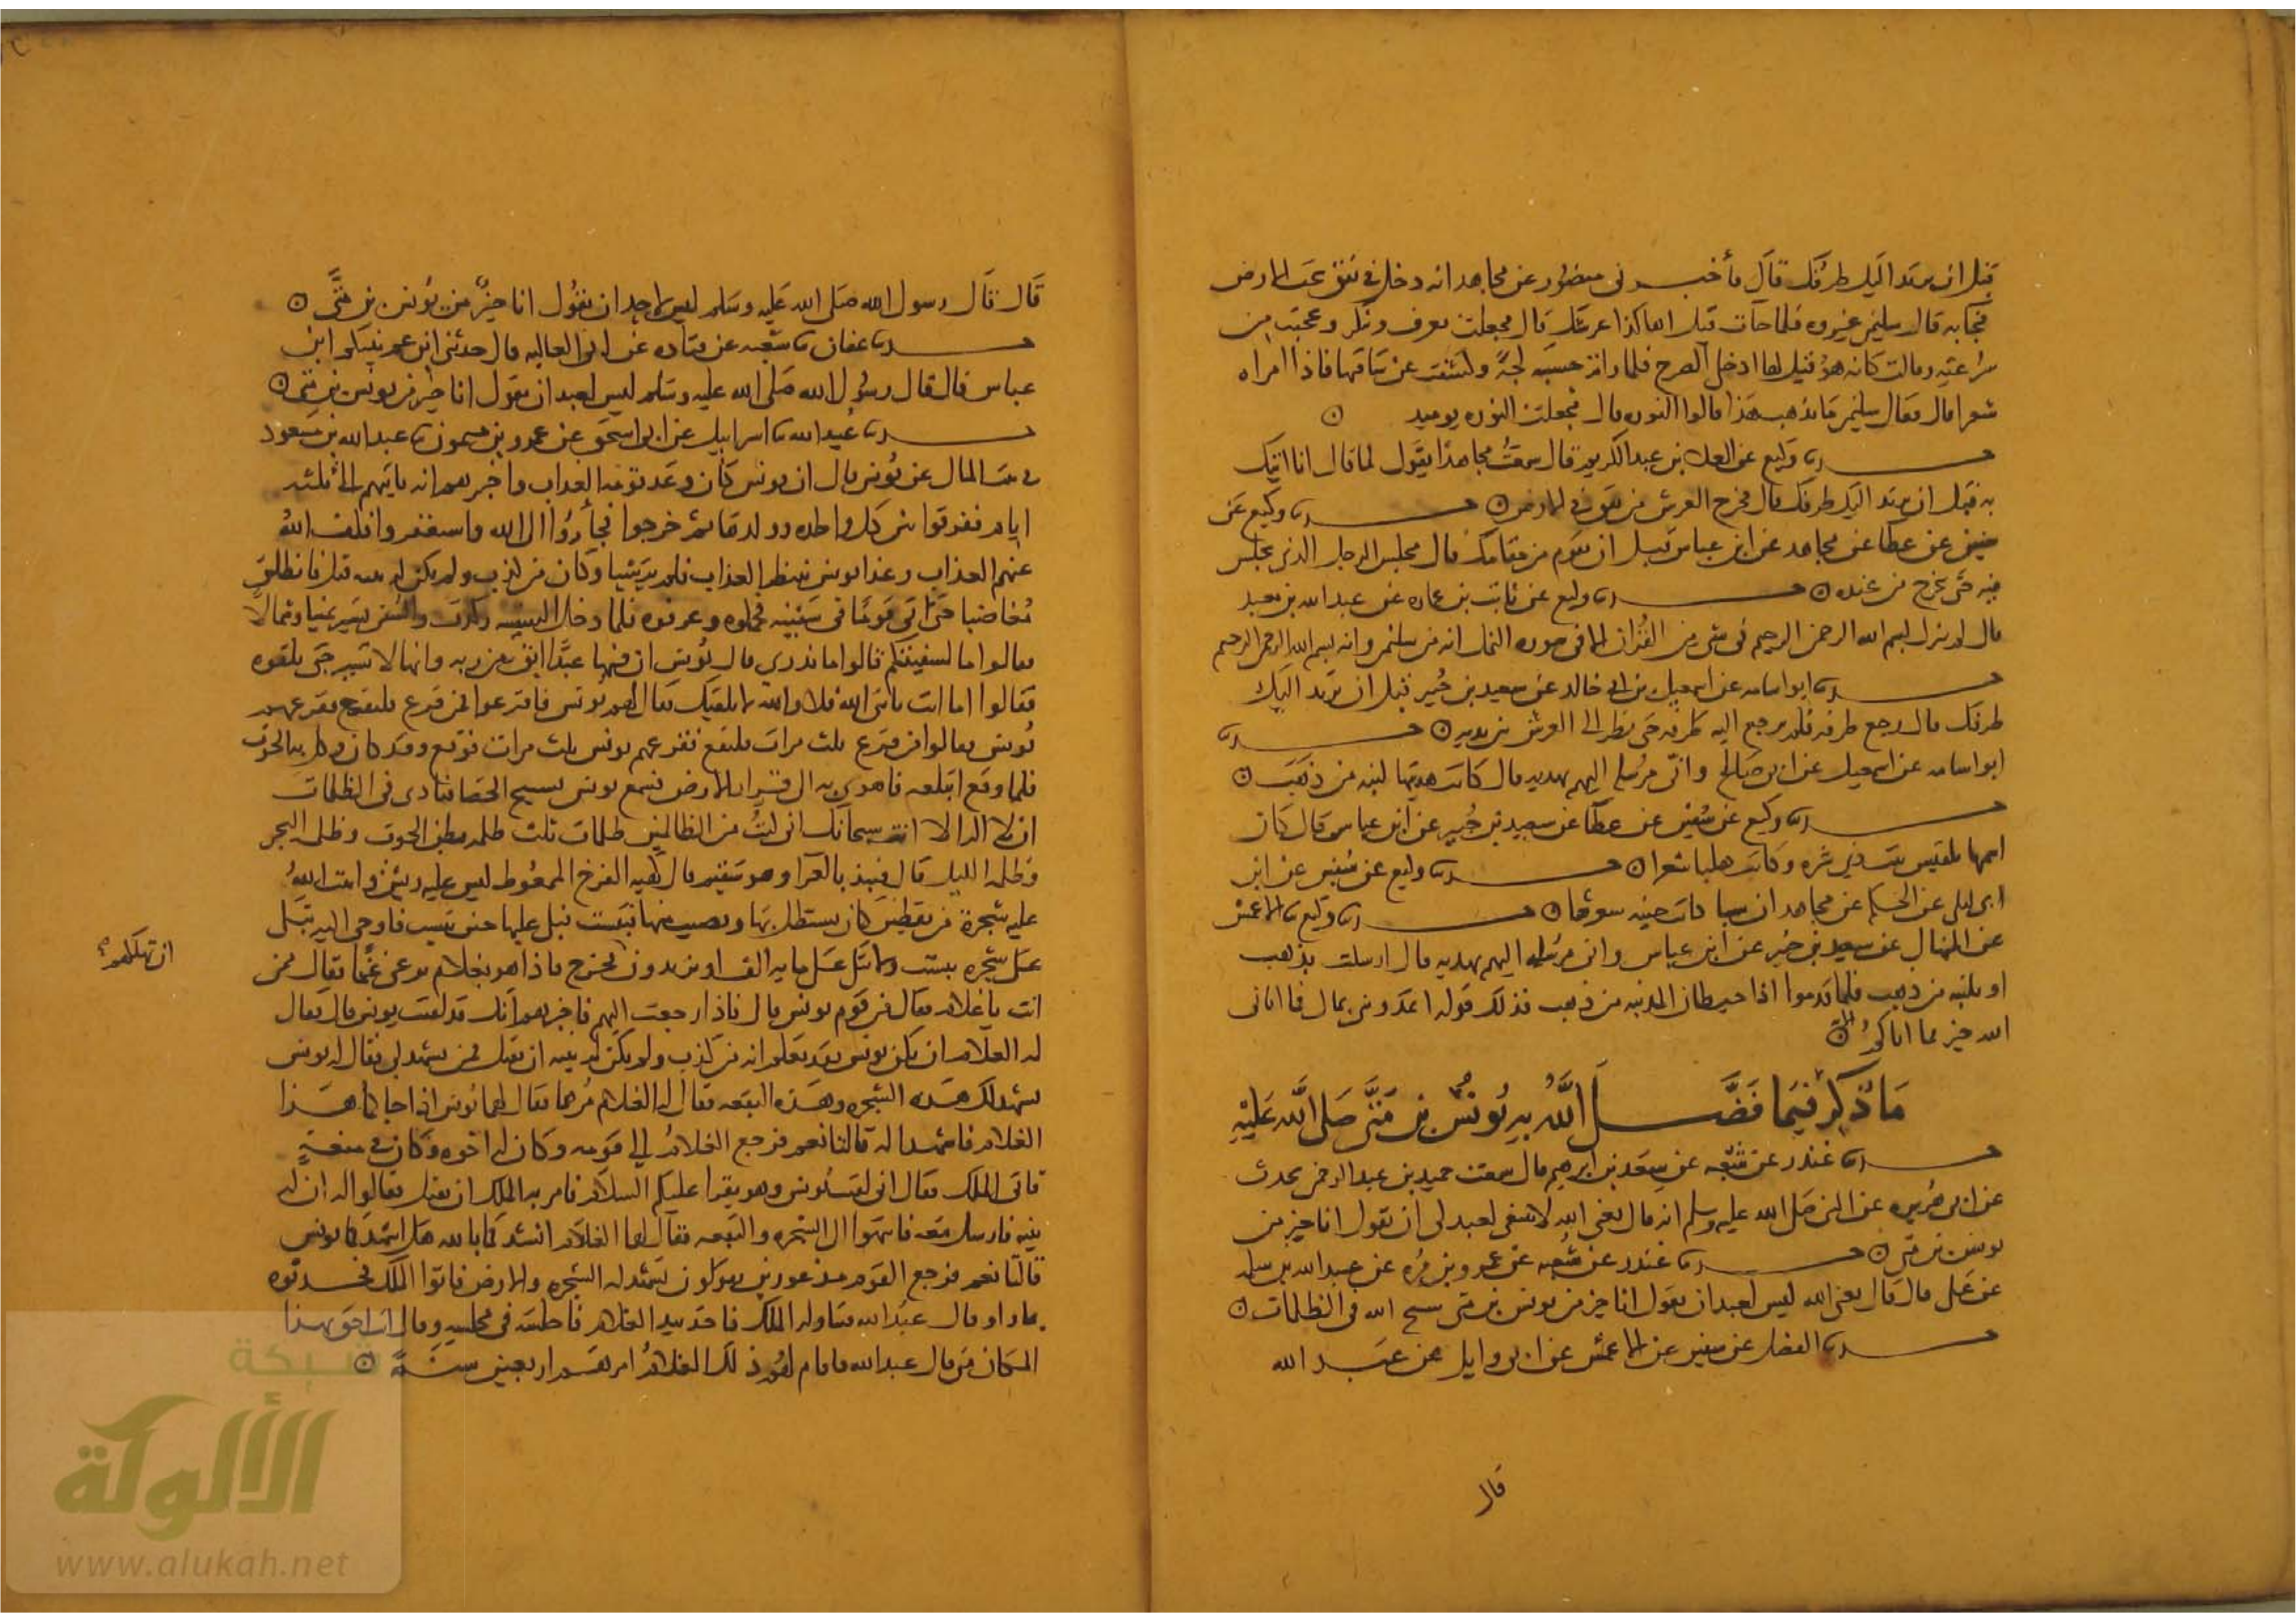 قبل ان يرتد اليك طرفك قال فأخبرني منصور عن مجاهد انه دخل في نفق تحت الارض
فجا به قال سليمن غيروه فلما جات قيل اهاكذا عرشك قال فجعلت تعرف وتنكر وعجبت من
سرعته وقالت كانه هو قيل لها ادخلي الصرح فلما راته حسبته لجة وكشفت عن ساقيها فاذا امراه
شعرا قال فقال سليمن ما يذهب هذا قالوا النوره قال فجعلت النوره يوميد ن
ثنا وكيع عن العلا بن عبد الكريم قال سمعت مجاهدا يقول لما قال انا اتيك
به قبل ان يرتد اليك طرفك قال فخرج العرش من نفق في الارض ن ثنا وكيع عن
عن عطا عن مجاهد عن ابن عباس قبل ان تقوم من مقامك قال مجلس الرجل الذي يجلس
فيه حتى يخرج من عنده ن ثنا وكيع عن ثابت بن عماره عن عبد الله بن معبد
قال لم ينزل بسم الله الرحمن الرحيم في شي من القران الا في سوره النمل انه من سليمن وانه بسم الله الرحمن الرحيم
ثنا ابو اسامه عن اسمعيل بن ابي خالد عن سعيد بن جبير قبل ان يرتد اليك
طرفك قال رجع طرفه فلم يرجع اليه طرفه حتى نظر الى العرش بين يديه ن ثنا
ابو اسامه عن اسمعيل عن ابي صالح واني مرسله اليهم بهديه قال كانت هديتها لبنه من ذهب ن
ثنا وكيع عن سفين عن عطا عن سعيد بن جبير عن ابن عباس قال كان
اسمها بلقيس بنت ذي شره وكانت هلبا شعرا ن ثنا وكيع عن سفين عن ابن
ابي ليلى عن الحكم عن مجاهد ان كانت جنيه شعرا ن ثنا وكيع ثنا الاعمش
عن المنهال عن سعيد بن جبير عن ابن عباس واني مرسله اليهم بهديه قال ارسلت بذهب
او بلبنه من ذهب فلما قدموا اذا حيطان المدينه من ذهب فذلك قوله اتمدونني بمال فما اتاني
الله خير مما اتاكم الايه ن
مَا ذُكِرَ فِيمَا فَضَّلَ اللَّهُ بِهِ يُونُسَ بن مَتَّى صَلى اللَّه عَليْهِ
ثنا غندر عن شعبه عن سعد بن ابرهيم قال سمعت حميد بن عبد الرحمن يحدث
عن ابي هريره عن النبي صلى الله عليه وسلم انه قال يعني الله لا ينبغي لعبد لي ان يقول انا خير من
يونس بن متى ن ثنا غندر عن شعبه عن عمرو بن مره عن عبد الله بن سلمه
عن علي قال قال يعني الله ليس لعبد ان يقول انا خير من يونس بن متى سبح الله في الظلمات ن
ثنا الفضل عن سفين عن الاعمش عن ابي وايل عن عبد الله
قال
قَال قَال رسول الله صَلى الله عَليه وسَلم ليس لاحد ان يقُول انا خيرٌ من يُونس بن مَتَّى ن
ثنا عفان ثنا شعبه عن قتاده عن ابي العاليه قال حدثني ابن عم نبيكم ابن
عباس قال قال رسول الله صلى الله عليه وسلم ليس لعبد ان يقول انا خير من يونس بن متى ن
ثنا عبيد الله ثنا اسرائيل عن ابي اسحق عن عمرو بن ميمون ثنا عبد الله بن مسعود
في بيت المال عن يونس قال ان يونس كان وعد قومه العذاب واخبرهم انه ياتيهم الى ثلثه
ايام ففرقوا بين كل والده وولدها ثم خرجوا فجأروا الى الله واستغفروا فكف الله
عنهم العذاب وغدا يونس ينتظر العذاب فلم ير شيا وكان من كذب ولم يكن له بينه قتل فانطلق
مُغاضبا حتى اتى قوما في سفينه فحملوه وعرفوه فلما دخل السفينه ركدت والسفن تسير يمينا وشمالا
فقالوا ما لسفينتكم قالوا ما ندري قال يونس ان فيها عبدا ابق من ربه وانها لا تسير حتى يلقوه
فقالوا اما انت يا نبي الله فلا والله لا نلقيك فقال لهم يونس فاقترعوا فمن قرع فليقع فقرعهم
يونس فقالوا فمن قرع ثلث مرات فليقع فقرعهم يونس ثلث مرات فوقع وقد كان وكل به الحوت
فلما وقع ابتلعه فاهوى به الى قرار الارض فسمع يونس تسبيح الحصا فنادى في الظلمات
ان لا اله الا انت سبحانك اني كنت من الظالمين ظلمات ثلث ظلمه بطن الحوت وظلمه البحر
وظلمه الليل قال فنبذ بالعرا وهو سقيم قال كهيه الفرخ الممعوط ليس عليه ريش وانبت الله
عليه شجرة من يقطين كان يستظل بها ويصيب منها فيبست فبكى عليها حين يبست فاوحى اليه تبكي
على شجره يبست ولا تبكي على مايه الف او يزيدون فخرج فاذا هو بغلام يرعى غنما فقال ممن
ان تهلكهم
انت يا غلام فقال من قوم يونس قال فاذا رجعت اليهم فاخبرهم انك قد لقيت يونس قال فقال
له الغلام ان يكن يونس فقد تعلم انه من كذب ولم يكن له بينه ان يقتل فمن يشهد لي فقال له يونس
تشهد لك هذه الشجره وهذه البقعه فقال له الغلام مُرهما فقال لهما يونس اذا جاكما هذا
الغلام فاشهدا له قالتا نعم فرجع الغلام الى قومه وكان له اخوه وكان في منعة
فاتى الملك فقال اني لقيت يونس وهو يقرا عليكم السلام فامر به الملك ان يقتل فقالوا له ان له
بينه فارسل معه فانتهوا الى الشجره والبقعه فقال لهما الغلام انشدكما بالله هل اشهدكما يونس
قالتا نعم فرجع القوم مذعورين يقولون تشهد له الشجره والارض فاتوا الملك فحدثوه
بما راو قال عبد الله فتناوله الملك فاخذ بيد الغلام فاجلسه في مجلسه وقال انت احق بهذا
المكان مني قال عبد الله فاقام لهم ذلك الغلام امرهم اربعين سنة ن
شبكة
الألوكة
www.alukah.net